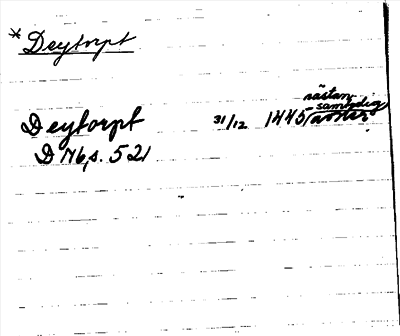 * Deytorpt
nästan
samtidig
Deytorpt 31/12 1445
D 76, s. 521